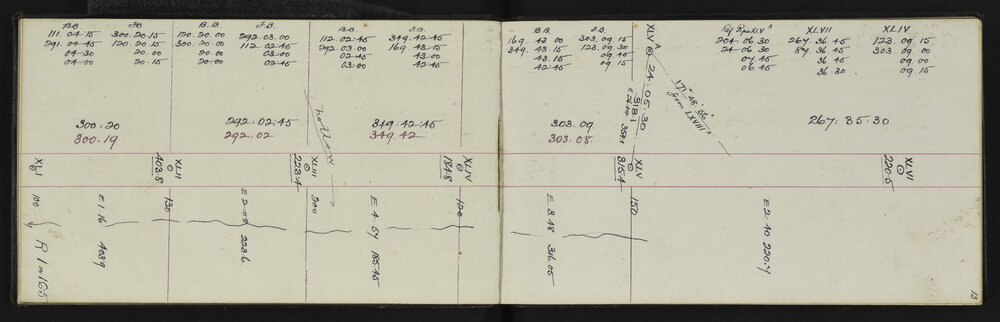 B.B. F.B. B.B. F.B. B.B. F.B.
111. 04.15 300. 20.15 120. 20.00 292. 03.00 112. 02:45 349. 42.45
291. 04.45 120. 20.15 300. 20.00 112. 02.45 292. 03.00 169. 43.15
04.30 20.00 20.00 03.00 02.45 43.00
04.00 20.15 20.00 02.45 03.00 42.45
300:20
300.19
292.02:45
292.02
349:42:45
349.42
hollow
XLI
XLII
403.8
XLIII
223.4
XLIV
184.8
100
130
200
120
E 1.16 403.9
E 2.08 223.6
E 4.54 185.45
R 1 m 165
B.B. F.B.
169. 43 00 303. 09.15
349. 43.15 123. 09.30
43.15 09.45
42:45 09.15
XLV A
24:05:30
518.1
171° 48' 56"
from LXVIII A
XLV A
204.06.30
24.06.30
07.45
06.45
XLVII
267. 36.45
87. 36.45
36.45
36.30
XLIV
123. 09.15
303. 09.00
09.00
09.15
303.09
303.08
267:35:30
XLV
315.4
XLVI
220.5
150
E 3.48 316.05
E 2.40 220.7
13